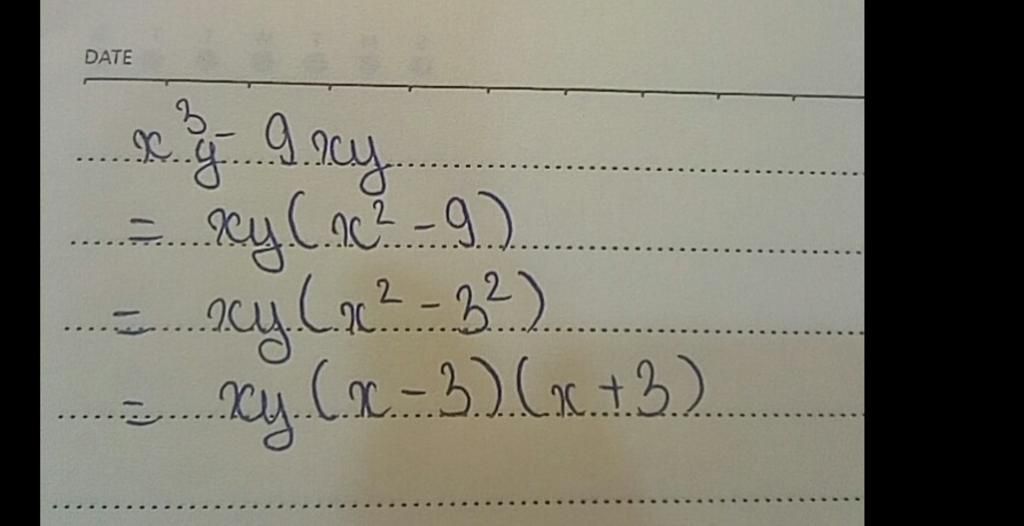 DATE
x³y - 9xy
= xy(x² - 9)
= xy(x² - 3²)
= xy(x - 3)(x + 3)